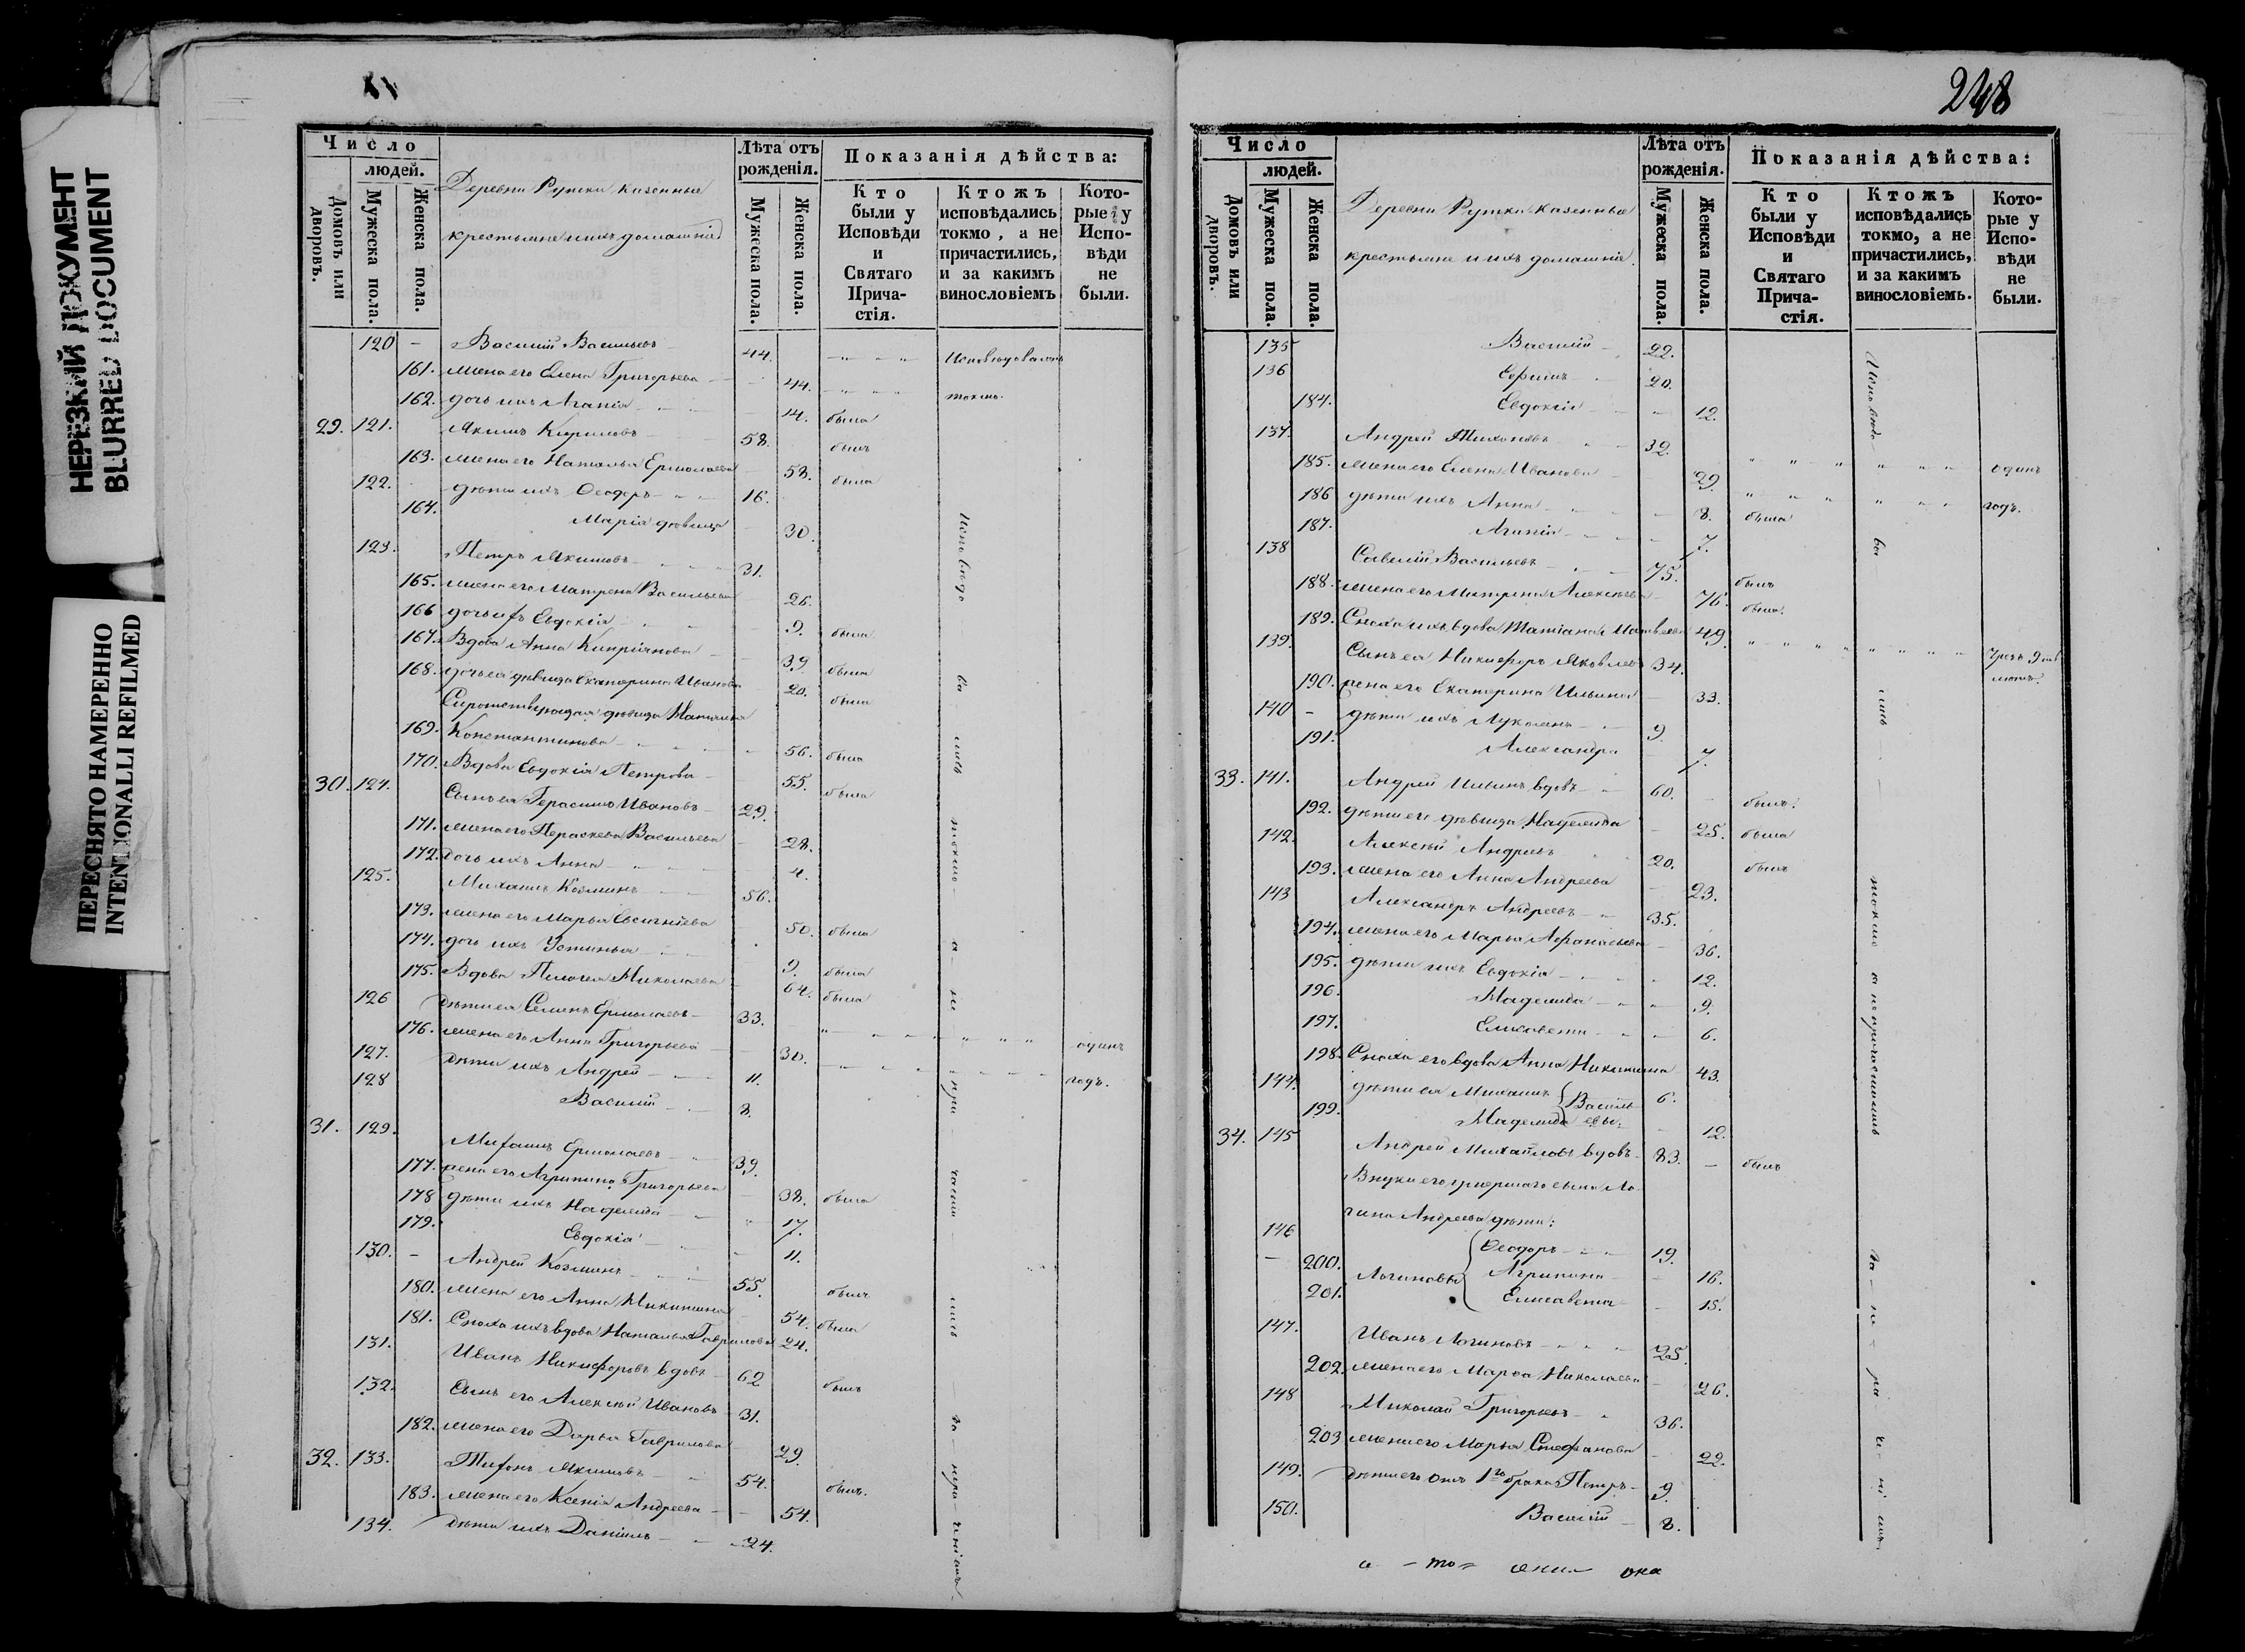 НЕРЕЗКИЙ ДОКУМЕНТ
BLURRED DOCUMENT
ПЕРЕСНЯТО НАМЕРЕННО
INTENTIONALLI REFILMED
Число
людей.
Домовъ или дворовъ.
Мужеска пола.
Женска пола.
Деревни Рутки казенные
крестьяне и ихъ домашніе
Лѣта отъ рожденія.
Мужеска пола.
Женска пола.
Показанія дѣйства:
Кто были у Исповѣди и Святаго Прича-стія.
Ктожъ исповѣдались токмо, а не причастились, и за какимъ винословіемъ
Кото-рые у Испо-вѣди не были.
120 - Василій Васильевъ 44. Исповѣдовались
161. жена его Елена Григорьева 44. токмо.
162. дочь ихъ Агапія 14. была
29. 121. Якимъ Кириловъ 58. былъ
163. жена его Наталья Ермолаева 58. была
122. дѣти ихъ Ѳеодоръ 16.
164. Марія дѣвица 30.
123. Петръ Якимовъ 31.
165. жена его Матрена Васильева 26.
166 дочь ихъ Евдокія 9. была
167. Вдова Анна Кипріянова 39. была
168. дочь ея дѣвица Екатерина Иванова 20. была
дѣвица Наталья
169. Константинова 56. была
170. Вдова Евдокія Петрова 55. была
30. 124. Сынъ ея Герасимъ Ивановъ 29.
171. жена его Параскева Васильева 28.
172. дочь ихъ Анна 4.
125. Михаилъ Козминъ 56.
173. жена его Марья Евсигніева 50. была
174. дочь ихъ Устинья 9. была
175. Вдова Пелагея Николаева 64. была
126 дѣти ея Семенъ Ермолаевъ 33.
176. жена его Анна Григорьева 30. одинъ
127. дѣти ихъ Андрей 11. годъ.
128 Василій 8.
31. 129. Михаилъ Ермолаевъ 39.
177. жена его Агрипина Григорьева 38. была
178 дѣти ихъ Надежда 17.
179. Евдокія 11.
130. - Андрей Козминъ 55. былъ
180. жена его Анна Никитина 54. была
181. Сноха ихъ вдова Наталья Гаврилова 24.
131. Иванъ Никифоровъ вдовъ 62 былъ
132. Сынъ его Алексѣй Ивановъ 31.
182. жена его Дарья Гаврилова 29.
32. 133. Тихонъ Якимовъ 54. былъ.
183. жена его Ксенія Андреева 54.
134. дѣти ихъ Даніилъ 24.
Исповѣдо-ва-лись токмо а не при-части-лись
248
Число
людей.
Домовъ или дворовъ.
Мужеска пола.
Женска пола.
Деревни Рутки казенные
крестьяне и ихъ домашніе.
Лѣта отъ рожденія.
Мужеска пола.
Женска пола.
Показанія дѣйства:
Кто были у Исповѣди и Святаго Прича-стія.
Ктожъ исповѣдались токмо, а не причастились, и за какимъ винословіемъ.
Кото-рые у Испо-вѣди не были.
135 Василій 22.
136 Ефимъ 20.
184. Евдокія 12.
137. Андрей Тихоновъ 32.
185. жена его Елена Иванова 29. одинъ
186 дѣти ихъ Анна 8. была годъ.
187. Агапія 7.
138 Савелій Васильевъ 75. былъ
188. жена его Матрена Алексѣева 76. была.
189. Сноха ихъ вдова Татіана Матвѣева 49.
139. Сынъ ея Никифоръ Яковлевъ 34.
190. жена его Екатерина Ильина 33.
140 - дѣти ихъ Лукіянъ 9.
191. Александра 7.
33. 141. Андрей Ильинъ вдовъ 60. былъ.
192. дѣти его дѣвица Надежда 25. была
142. Алексѣй Андреевъ 20. былъ
193. жена его Анна Андреева 23.
143 Александръ Андреевъ 35.
194. жена его Марья Афанасьева 36.
195. дѣти ихъ Евдокія 12.
196. Надежда 9.
197. Елисавета 6.
198. Сноха его вдова Анна Никитина 43.
144. дѣти ея Михаилъ Василь 6.
199. Надежда евы. 12.
34. 145 Андрей Михайловъ вдовъ 83. былъ
Внуки его умершаго сына Ло
гина Андреева дѣти:
146 Ѳеодоръ 19.
200. Логиновы Агрипина 16.
201. Елисавета 15.
147. Иванъ Логиновъ 25.
202. жена его Марѳа Николаева 26.
148 Николай Григорьевъ 36.
203 жена его Марья Стефанова 22.
149. дѣти его отъ 1го брака Петръ 9.
150. Василій 8.
Исповѣдо-ва-лись токмо а не причастились